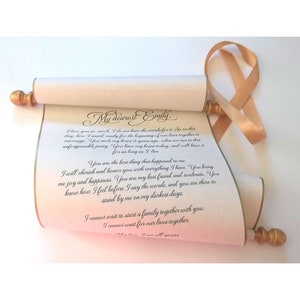 My dearest Emily,
I love you so much. I do not have the words for it. So on this
day, here I stand, ready for the beginning of our lives together in
marriage. You stole my heart 5 years ago, when we met on that
unforgettable party. You have my love today, and will have it
for as long as I live.
You are the best thing that happened to me.
I will cherish and honor you with everything I have. You bring
me joy and happiness. You are my best friend and soulmate. You
know how I feel before I say the words, and you are there to
stand by me on my darkest days.
I cannot wait to start a family together with you.
I cannot wait for our lives together.
I am all yours